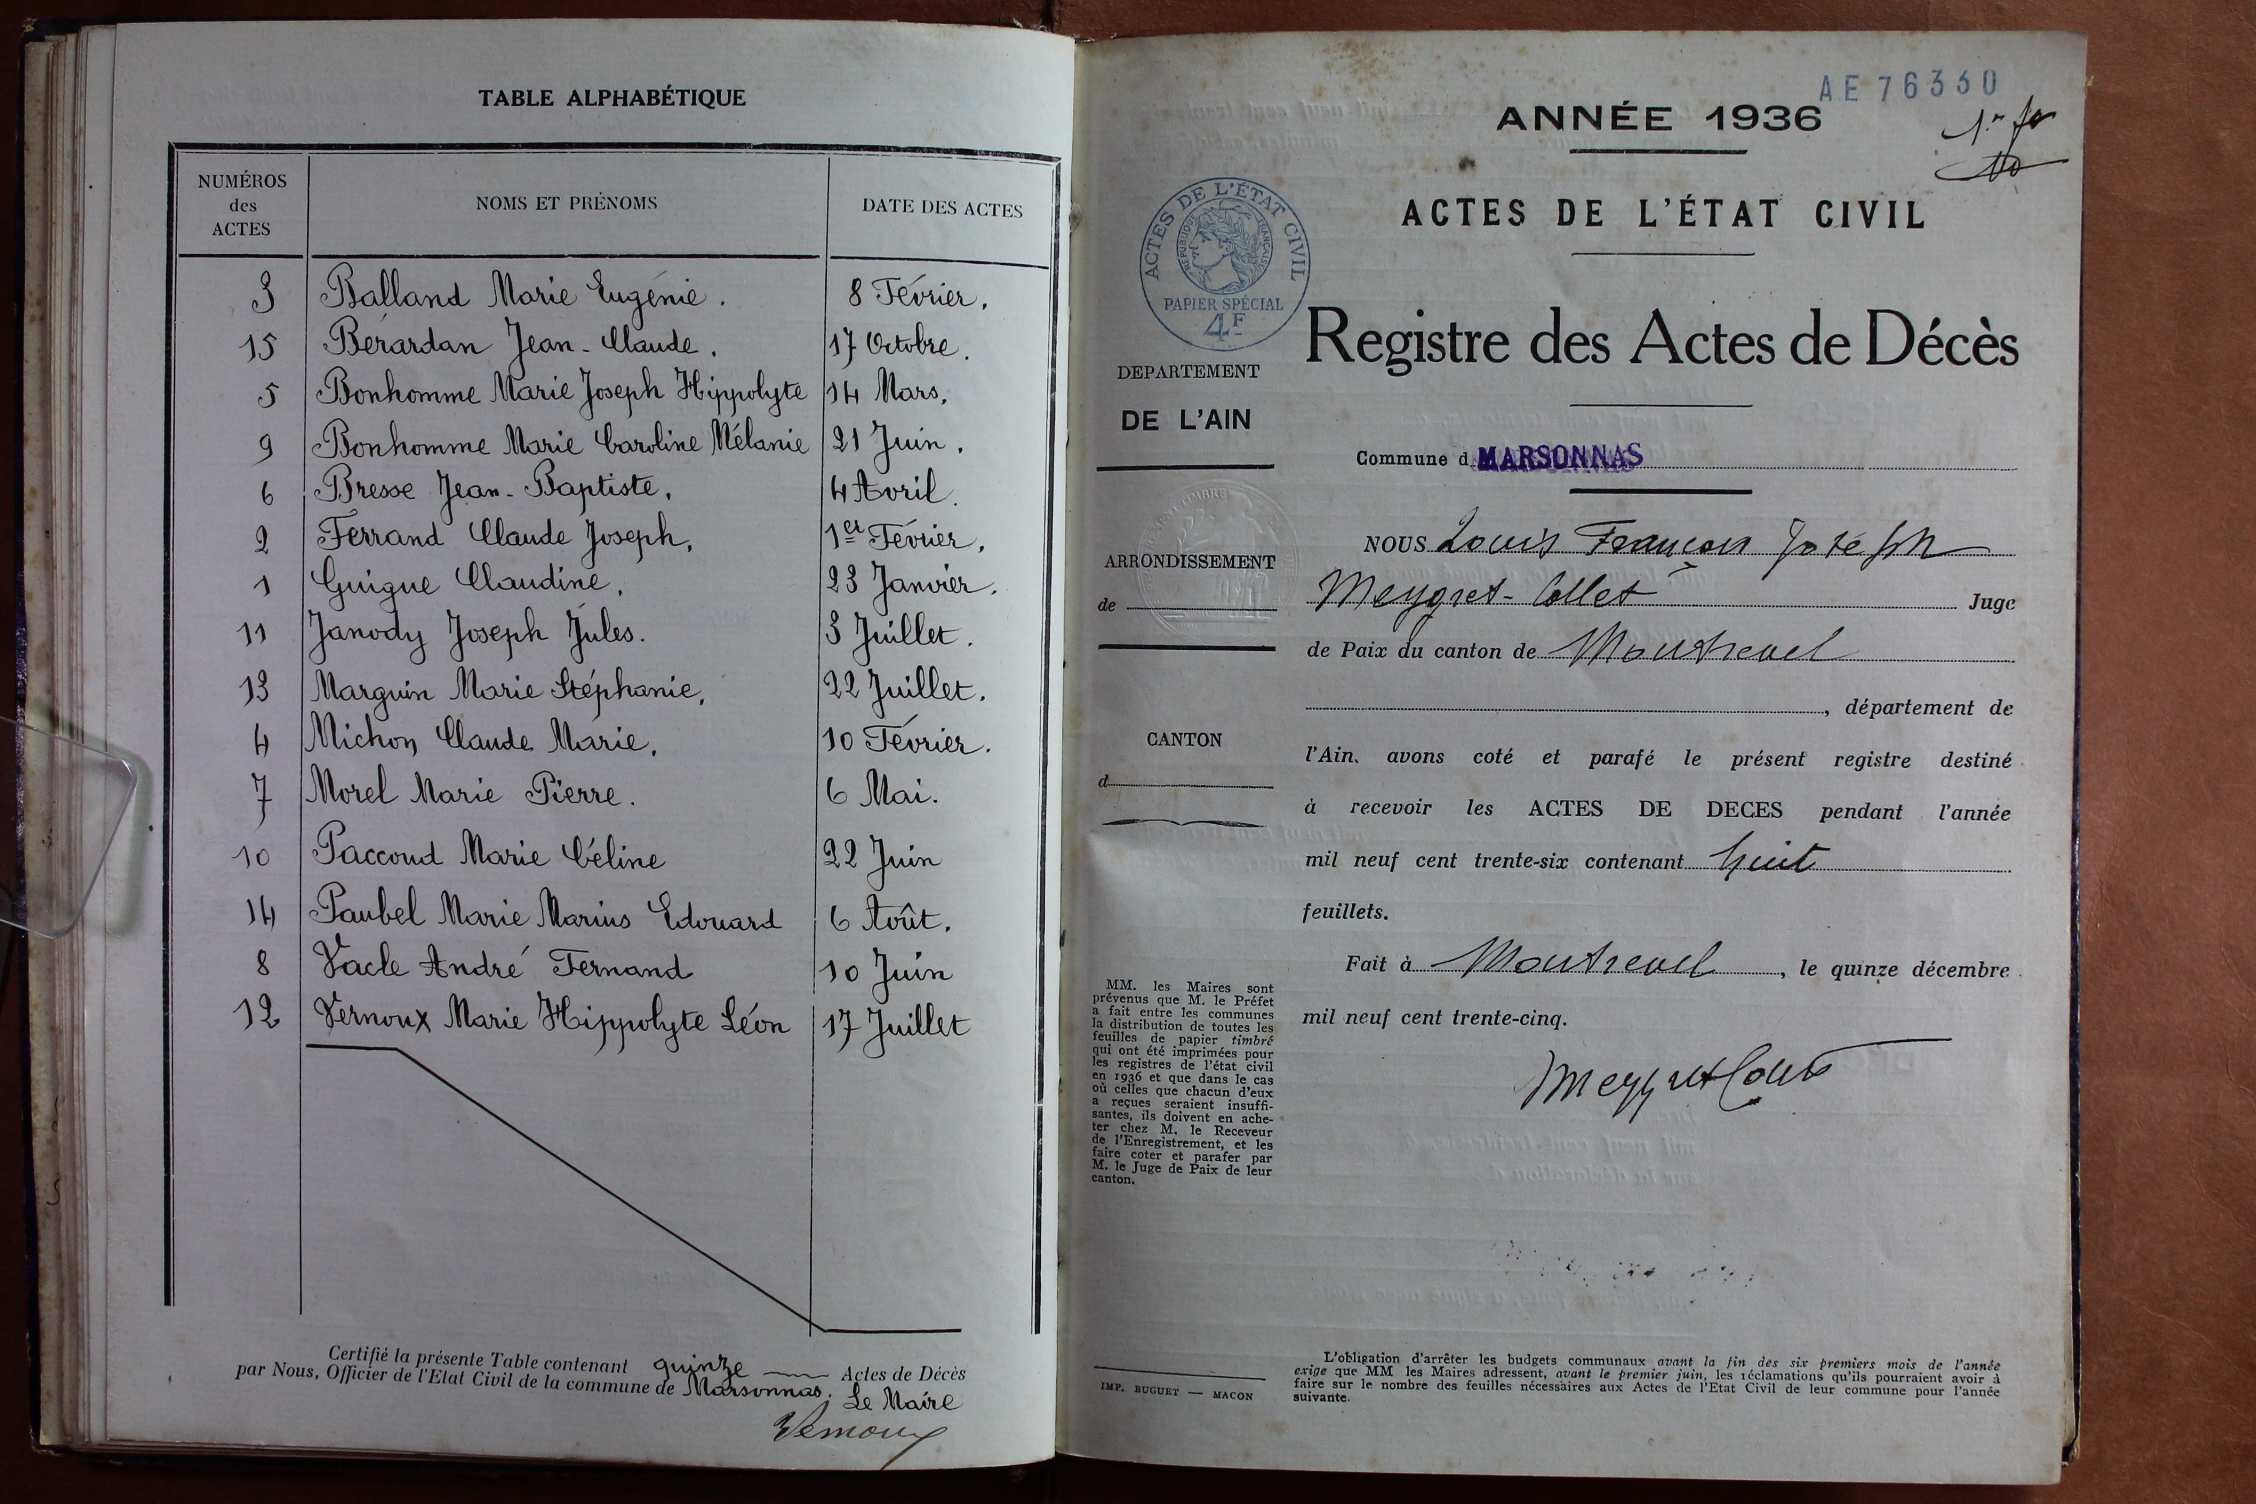 TABLE ALPHABÉTIQUE
NUMÉROS des ACTES NOMS ET PRÉNOMS DATE DES ACTES
3 Balland Marie Eugénie. 8 Février.
15 Bérardan Jean-Claude. 17 Octobre.
5 Bonhomme Marie Joseph Hippolyte 14 Mars.
9 Bonhomme Marie Caroline Mélanie 21 Juin.
6 Bresse Jean-Baptiste. 4 Avril.
2 Ferrand Claude Joseph. 1er Février.
1 Guigue Claudine. 23 Janvier.
11 Janody Joseph Jules. 3 Juillet.
13 Marguin Marie Stéphanie. 22 Juillet.
4 Michon Claude Marie. 10 Février.
7 Morel Marie Pierre. 6 Mai.
10 Paccoud Marie Céline 22 Juin
14 Paubel Marie Marius Edouard 6 Août.
8 Vacle André Fernand 10 Juin
12 Vernoux Marie Hippolyte Léon 17 Juillet
Certifié la présente Table contenant quinze Actes de Décès
par Nous, Officier de l'Etat Civil de la commune de Marsonnas.
Le Maire
Vernoux
AE 76330
ANNÉE 1936
ACTES DE L'ÉTAT CIVIL
ACTES DE L'ÉTAT CIVIL
RÉPUBLIQUE FRANÇAISE
PAPIER SPÉCIAL
4F
Registre des Actes de Décès
DEPARTEMENT
DE L'AIN
ARRONDISSEMENT
de
CANTON
d
MM. les Maires sont
prévenus que M. le Préfet
a fait entre les communes
la distribution de toutes les
feuilles de papier timbré
qui ont été imprimées pour
les registres de l'état civil
en 1936 et que dans le cas
où celles que chacun d'eux
a reçues seraient insuffi-
santes, ils doivent en ache-
ter chez M. le Receveur
de l'Enregistrement, et les
faire coter et parafer par
M. le Juge de Paix de leur
canton.
IMP. BUGUET — MACON
Commune d MARSONNAS
NOUS Louis François Joseph
Meygret-Collet Juge
de Paix du canton de Montrevel
, département de
l'Ain, avons coté et parafé le présent registre destiné
à recevoir les ACTES DE DECES pendant l'année
mil neuf cent trente-six contenant huit
feuillets.
Fait à Montrevel, le quinze décembre
mil neuf cent trente-cinq.
Meygret Collet
L'obligation d'arrêter les budgets communaux avant la fin des six premiers mois de l'année
exige que MM les Maires adressent, avant le premier juin, les réclamations qu'ils pourraient avoir à
faire sur le nombre des feuilles nécessaires aux Actes de l'Etat Civil de leur commune pour l'année
suivante.